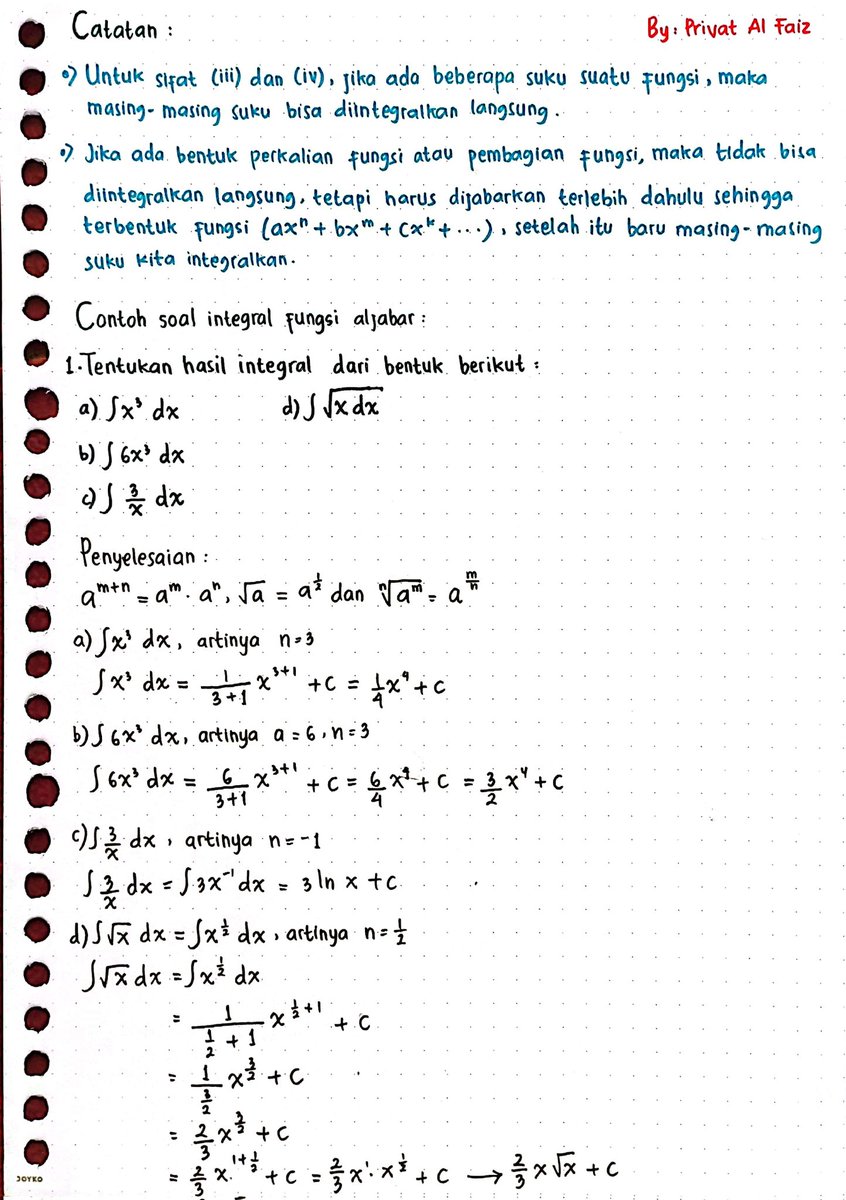 Catatan :
By: Privat Al Faiz
•) Untuk sifat (iii) dan (iv), jika ada beberapa suku suatu fungsi, maka
masing-masing suku bisa diintegralkan langsung.
•) Jika ada bentuk perkalian fungsi atau pembagian fungsi, maka tidak bisa
diintegralkan langsung, tetapi harus dijabarkan terlebih dahulu sehingga
terbentuk fungsi (axⁿ + bxᵐ + cxᵏ + ...), setelah itu baru masing-masing
suku kita integralkan.
Contoh soal integral fungsi aljabar :
1. Tentukan hasil integral dari bentuk berikut :
a) ∫x³ dx d) ∫√(x dx)
b) ∫6x³ dx
c) ∫ 3/x dx
Penyelesaian :
a^(m+n) = a^m · a^n, √a = a^(1/2) dan ⁿ√(a^m) = a^(m/n)
a) ∫x³ dx, artinya n=3
∫x³ dx = 1/(3+1) x^(3+1) + C = 1/4 x⁴ + C
b) ∫6x³ dx, artinya a = 6, n = 3
∫6x³ dx = 6/(3+1) x^(3+1) + C = 6/4 x⁴ + C = 3/2 x⁴ + C
c) ∫ 3/x dx, artinya n = -1
∫ 3/x dx = ∫3x⁻¹ dx = 3 ln x + C
d) ∫√x dx = ∫x^(1/2) dx, artinya n = 1/2
∫√x dx = ∫x^(1/2) dx
= 1/(1/2 + 1) x^(1/2+1) + C
= 1/(3/2) x^(3/2) + C
= 2/3 x^(3/2) + C
= 2/3 x^(1+1/2) + C = 2/3 x¹ · x^(1/2) + C → 2/3 x√x + C
JOYKO